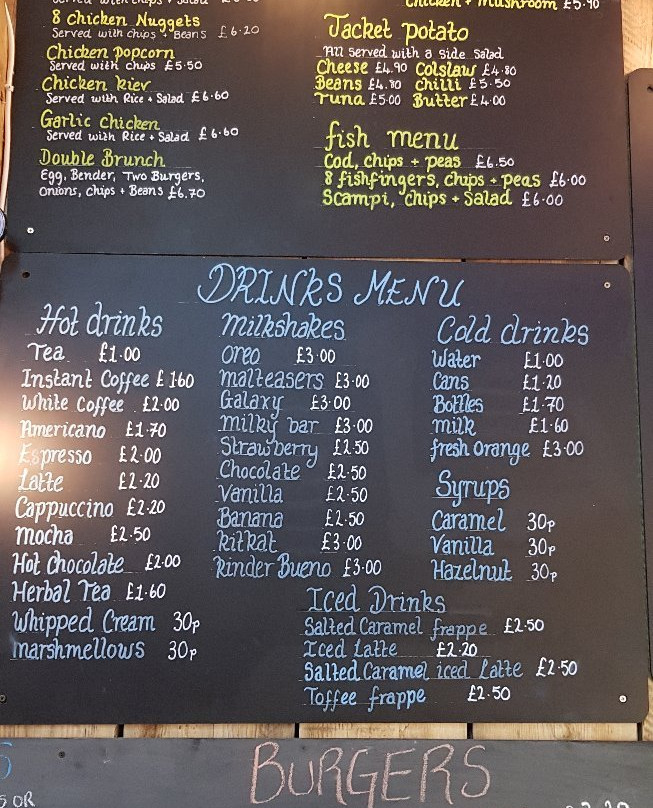 8 Chicken Nuggets
Served with chips + Beans £6·20
Chicken Popcorn
Served with chips £5·50
Chicken kiev
Served with Rice + Salad £6·60
Garlic Chicken
Served with Rice + Salad £6·60
Double Brunch
Egg, Bender, Two Burgers,
Onions, Chips + Beans £6.70
Chicken + Mushroom £5·90
Jacket potato
All served with a side salad
Cheese £4.90 Colslaw £4·80
Beans £4.80 Chilli £5·50
Tuna £5·00 Butter £4·00
fish menu
Cod, chips + peas £6.50
8 fishfingers, chips + peas £6·00
Scampi, chips + Salad £6·00
DRINKS MENU
Hot drinks
Tea £1·00
Instant Coffee £1·60
White Coffee £2·00
Americano £1·70
Espresso £2·00
Latte £2·20
Cappuccino £2·20
Mocha £2·50
Hot chocolate £2·00
Herbal Tea £1·60
Whipped Cream 30p
Marshmellows 30p
Milkshakes
Oreo £3·00
Malteasers £3·00
Galaxy £3·00
Milky bar £3·00
Strawberry £2·50
Chocolate £2·50
Vanilla £2·50
Banana £2·50
Kitkat £3·00
Kinder Bueno £3·00
Cold drinks
Water £1·00
Cans £1·20
Bottles £1·70
Milk £1·60
fresh Orange £3·00
Syrups
Caramel 30p
Vanilla 30p
Hazelnut 30p
Iced Drinks
Salted Caramel frappe £2·50
Iced Latte £2·20
Salted Caramel iced Latte £2·50
Toffee frappe £2·50
BURGERS
OR